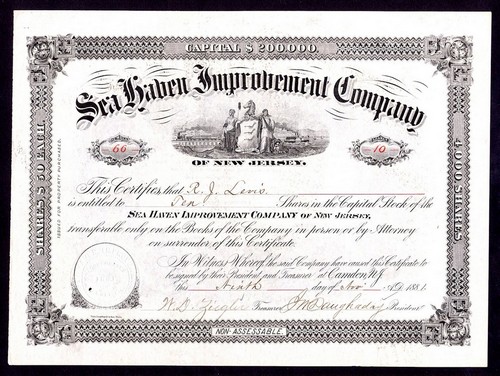 CAPITAL $200,000.
Sea Haven Improvement Company
66
10
OF NEW JERSEY.
SHARES $50 EACH
ISSUED FOR PROPERTY PURCHASED.
4,000 SHARES
This Certifies, that R. J. Levis
is entitled to Ten Shares in the Capital Stock of the
SEA HAVEN IMPROVEMENT COMPANY OF NEW JERSEY,
transferable only on the Books of the Company in person or by Attorney
on surrender of this Certificate.
In Witness Whereof, the said Company have caused this Certificate to
be signed by their President and Treasurer at Camden N.J.
this Ninth day of Nov. A.D. 1881.
W. D. Ziegler Treasurer President
NON-ASSESSABLE.